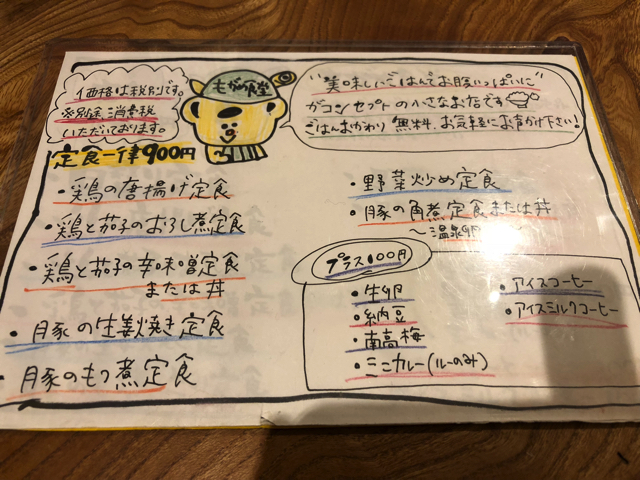 価格は税別です。
※別途消費税
いただいております。
もがみ食堂
"美味しいごはんでお腹いっぱいに"
がコンセプトの小さなお店です
ごはんおかわり無料、お気軽にお声がけ下さい!
定食一律900円
・鶏の唐揚げ定食
・鶏と茄子のおろし煮定食
・鶏と茄子の辛味噌定食
または丼
・豚の生姜焼き定食
・豚のもつ煮定食
・野菜炒め定食
・豚の角煮定食または丼
〜温泉卵
プラス100円
・生卵
・納豆
・南高梅
・ミニカレー(ルーのみ)
・アイスコーヒー
・アイスミルクコーヒー